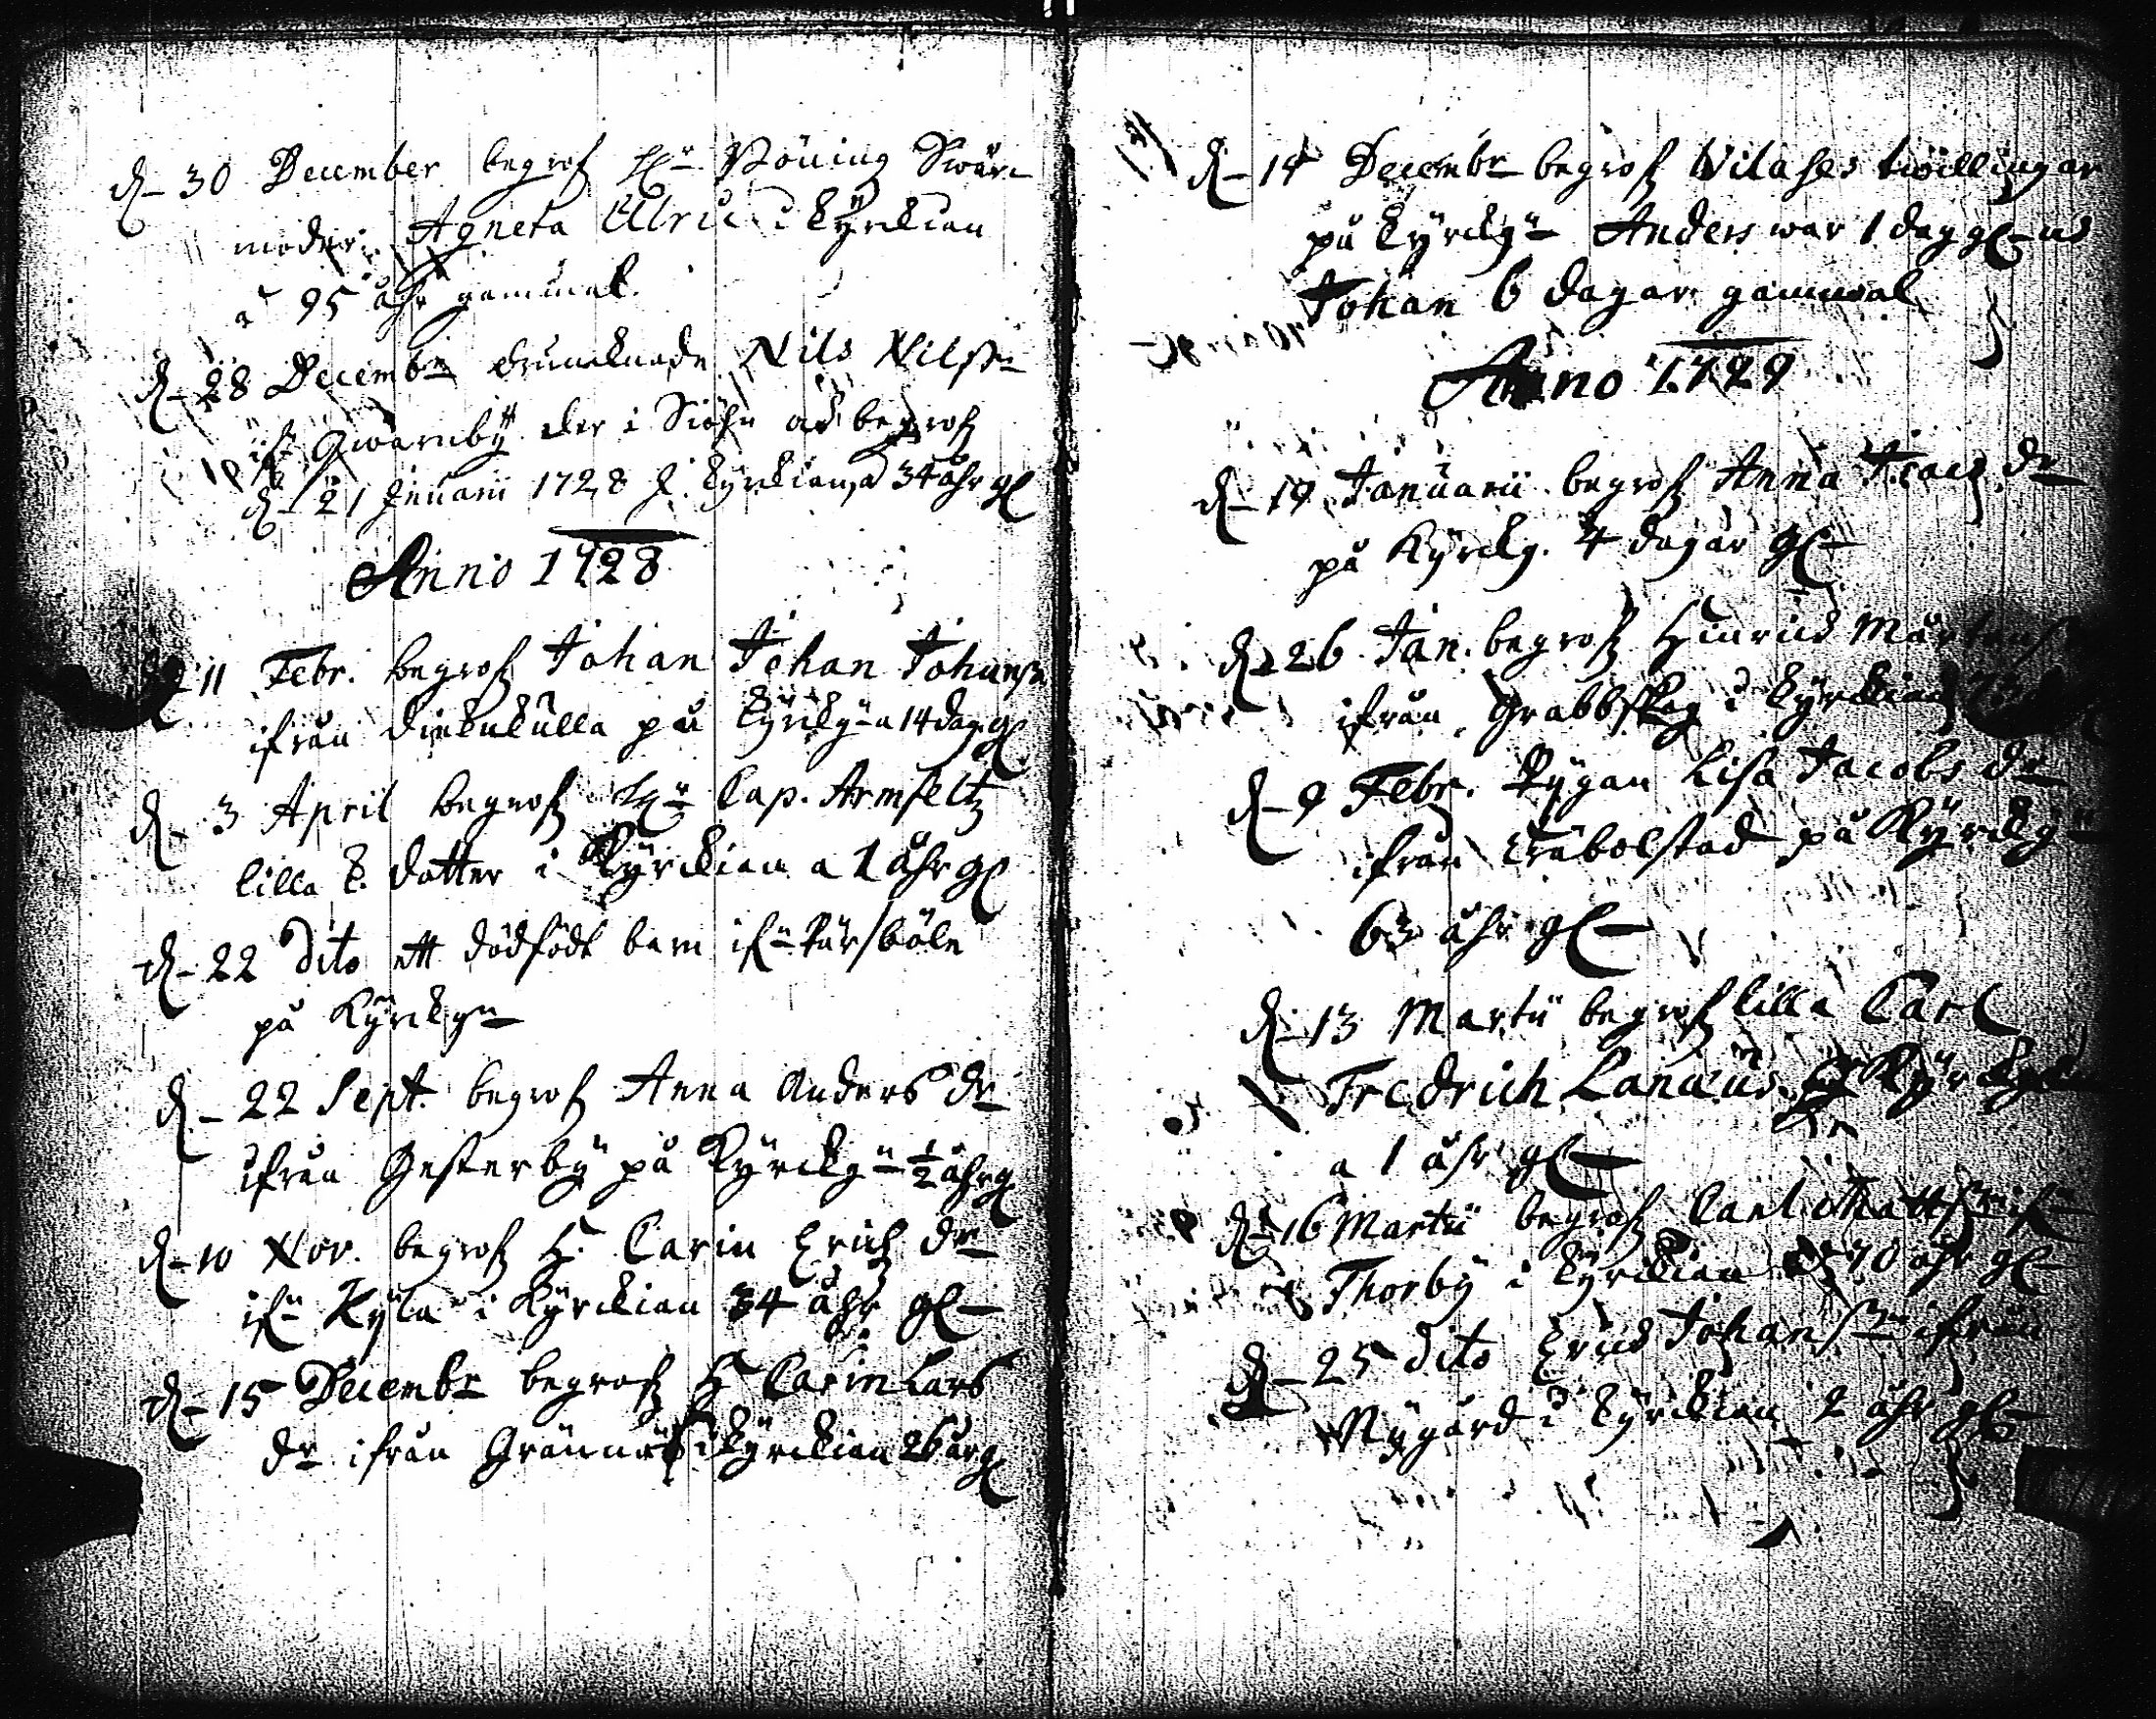 d. 30 December begrofs Hr Pöuing Swär
moder Agneta Ulric i Kyrckian
a 95 åhr gammal.
d. 28 Decembr druncknade Nils Nilss
ifr Qwarnby der i Siöhn och begrofs
d. 21 Januarii 1728 i Kyrckian, a 34 åhr gl
Anno 1728
11 Febr. begrofs Johan Johan Johanss
ifrån kulla på Kyrckgn a 14 dag. gl
d. 3 April begrofs Hr Cap. Armfeltz
lilla dotter i Kyrckian a 1 åhr gl
d. 22 Dito ett dödfödt barn ifn Pärsböle
på Kyrckgn
d. 22 Sept. begrofs Anna Anders dr
ifrån Gesterby på Kyrckgn ½ åhr gl
d. 10 Nov. begrofs H. Carin Erichs dr
ifn Kyla i Kyrckian 34 åhr gl
d. 15 Decembr begrofs H Carin Lars
dr ifrån Grännäs i Kyrckian 26 år gl
d. 14 Decembr begrofs twillingar
på Kyrckgn Anders war 1 dag gl och
Johan 6 dagar gammal
Anno 1729
d. 19 Januarii begrofs Anna dr
på Kyrckg. 4 dagar gl
d. 26 Jan. begrofs Hinrics Mårtens
ifrån Grabbskog i Kyrckian
d. 9 Febr. Pygan Lisa Jacobs dr
ifrån Träbolstad på Kyrckgn
63 åhr gl
d. 13 Martii begrofs lilla Carl
Fredrich Lanæus Kyrckgn
a 1 åhr gl
d. 16 Martii begrofs Carl Mattss ifn
Thorby i Kyrckian 70 åhr gl
d. 25 dito Erics Johanss ifrån
Nygård i Kyrckian 2 åhr gl